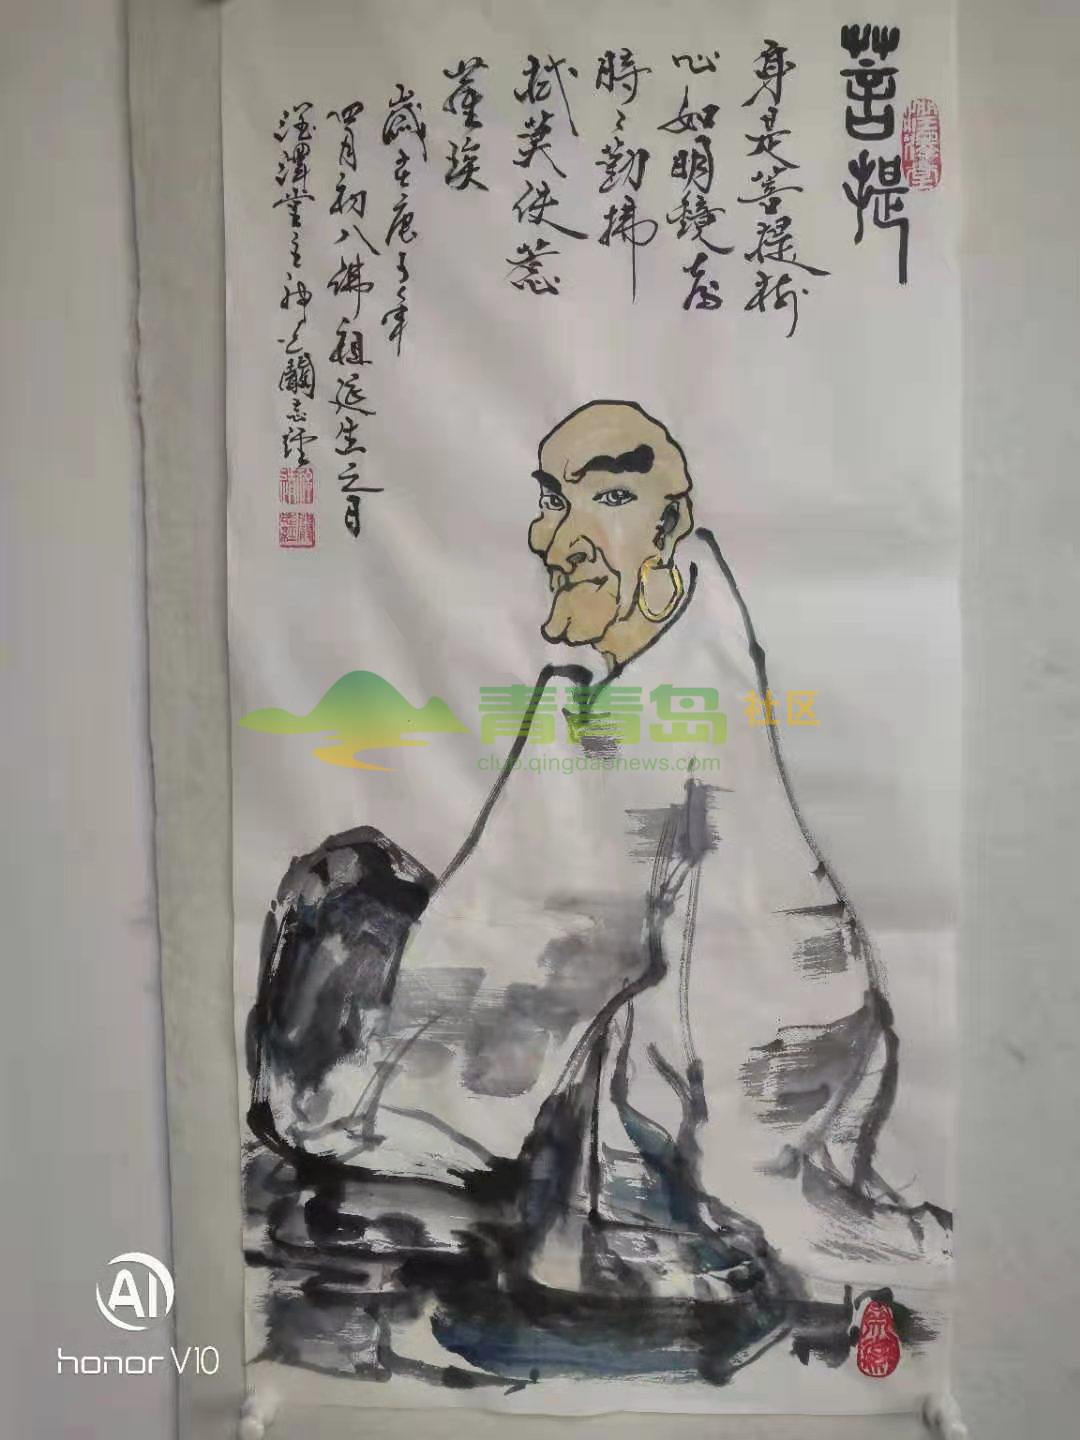 菩提
身是菩提树
心如明鏡台
時々勤拂
拭莫使惹
塵埃
歲在庚子年
四月初八佛祖延生之日
青青岛社区
club.qingdaonews.com
AI
honor V10